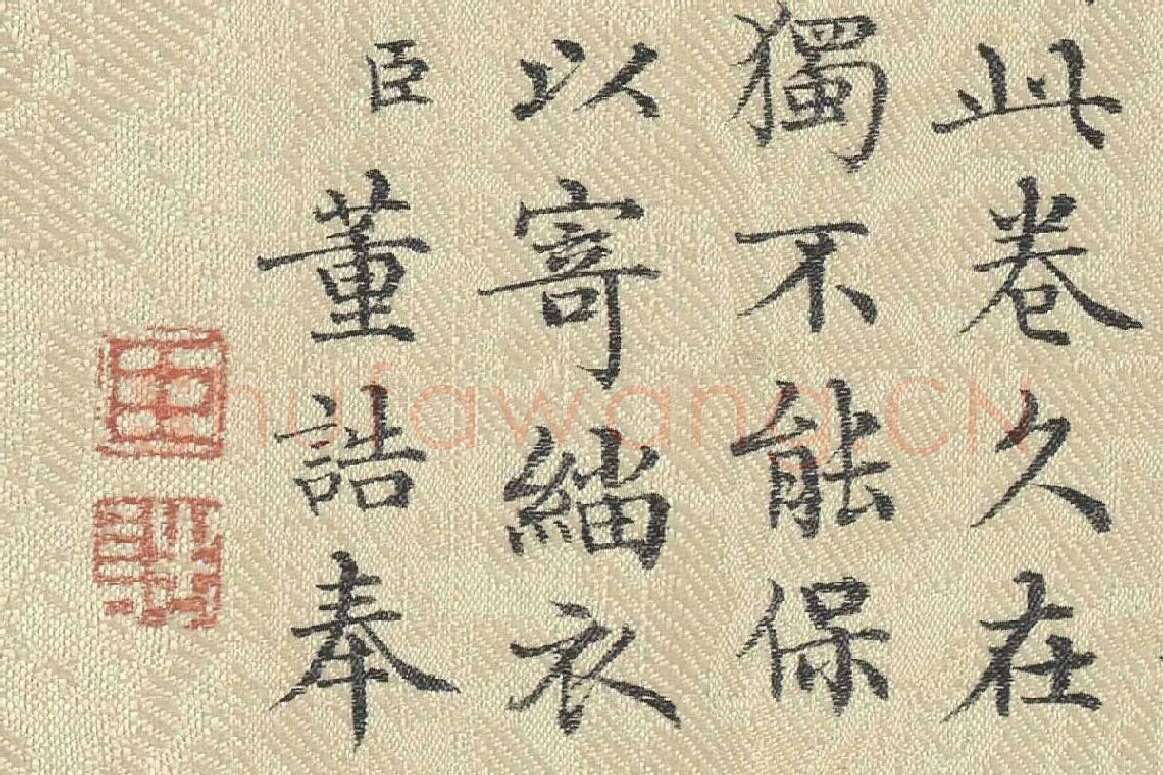 此卷久在
獨不能保
以寄緇衣
臣董誥奉
shufawang.CN